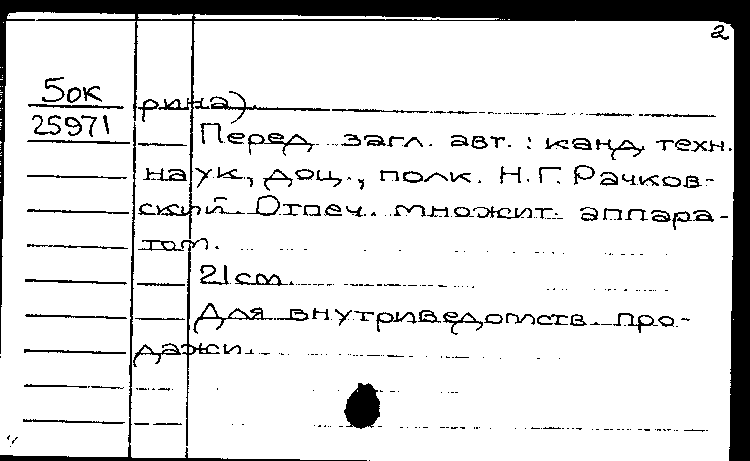 2
5ок рина).
25971 Перед загл. авт.: канд. техн.
наук, доц., полк. Н.Г. Рачков-
ский. Отпеч. множит. аппара-
том.
21 см.
Для внутриведомств. про-
дажи.